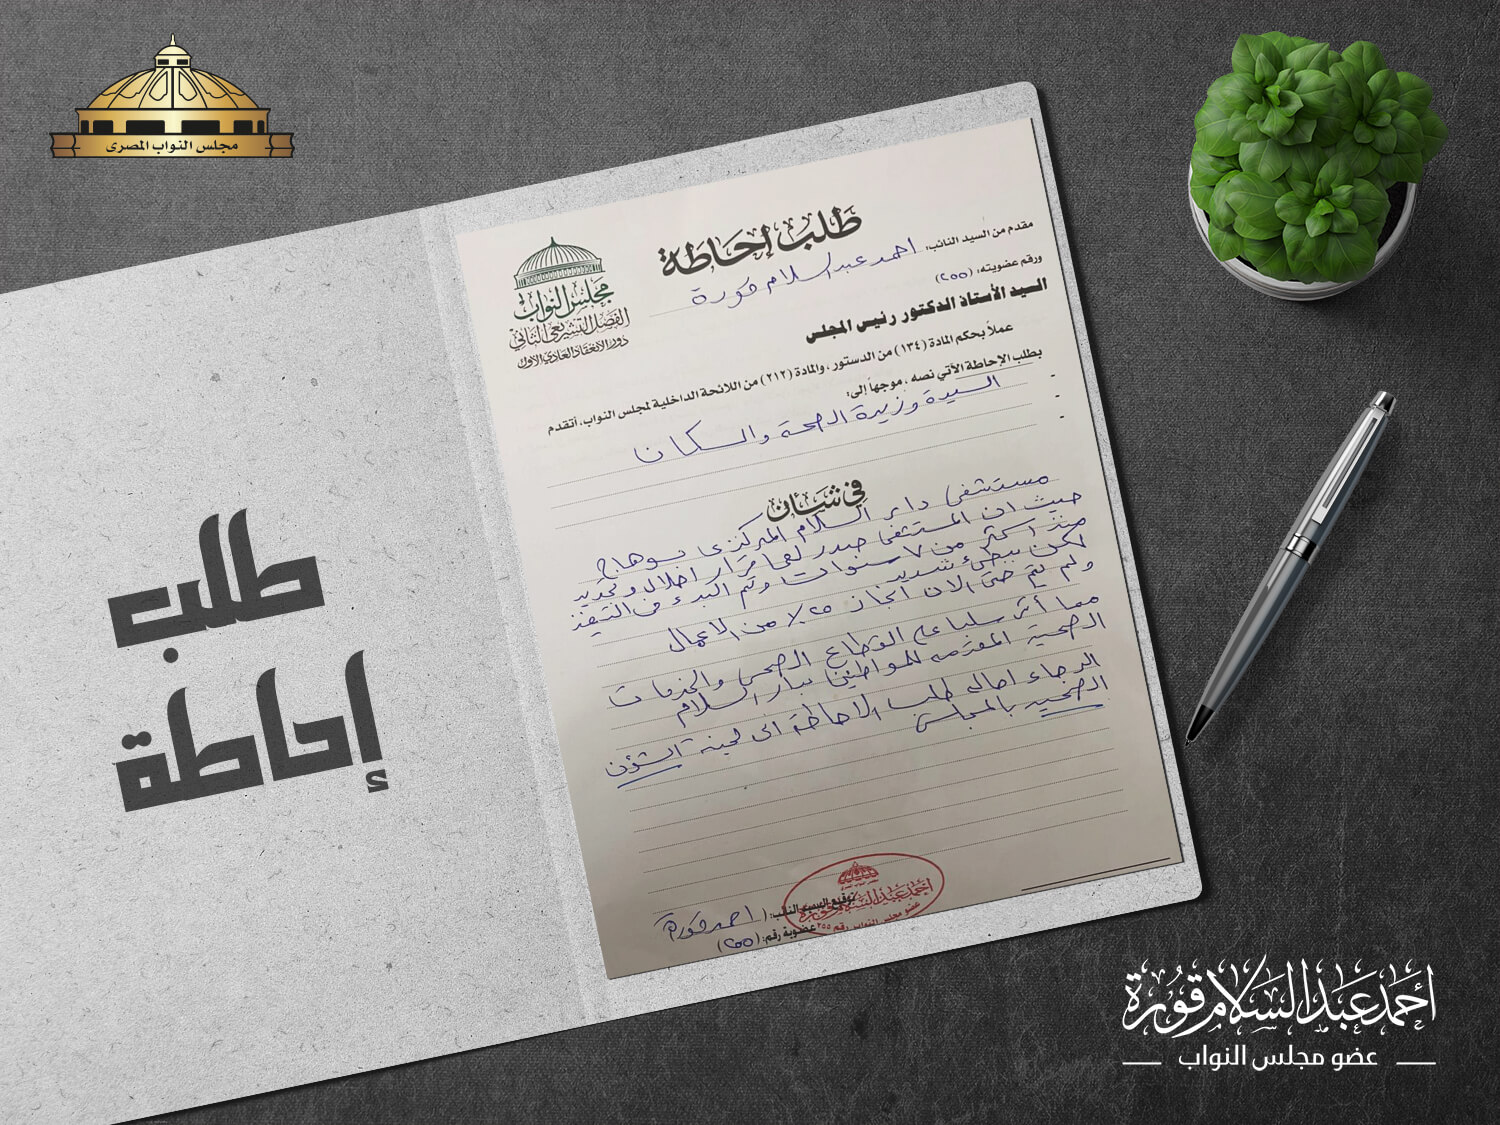 مجلس النواب المصرى
طلب إحاطة
مجلس النواب
الفصل التشريعى الثانى
دور الانعقاد العادى الأول
مقدم من السيد النائب: احمد عبد السلام قورة
ورقم عضويته: (٢٥٥)
السيد الأستاذ الدكتور رئيس المجلس
عملاً بحكم المادة (١٣٤) من الدستور، والمادة (٢١٢) من اللائحة الداخلية لمجلس النواب، أتقدم
بطلب الإحاطة الآتي نصه، موجهاً إلى:
السيدة وزيرة الصحة والسكان
في شأن
مستشفى دار السلام المركزى بسوهاج
حيث ان المستشفى صدر لها قرار احلال وتجديد
منذ اكثر من ٧ سنوات وتم البدء فى التنفيذ
لكن ببطئ شديد
ولم يتم حتى الان انجاز ٢٥٪ من الاعمال
مما أثر سلبا على القطاع الصحى والخدمات
الصحية المقدمه للمواطنين بدار السلام
الرجاء احالة طلب الاحاطة الى لجنة الشؤن
الصحيه بالمجلس
توقيع السيد النائب: (احمد قورة
عضوية رقم: (٢٥٥)
أحمد عبد السلام قورة
عضو مجلس النواب رقم ٢٥٥
طلب
إحاطة
أحمد عبد السلام قورة
عضو مجلس النواب